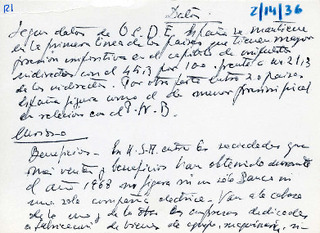 R1
Datos 2/14/36
Segun datos de O.C.D.E. España se mantiene
en la primera linea de los países que tienen mayor
presion impositiva en el capitulo de impuestos
indirectos con el 45,3 por 100 frente a un 21,3
de los indirectos. Por otra parte entre 20 paises
España figura como el de menor presion fiscal
en relacion con el P.N.B.
Curioso
Beneficios. En U.S.A. entre las sociedades que
mas ventas y beneficios han obtenido durante
el año 1968 no figura ni un solo Banco ni
una sola compañia electrica. Van a la cabeza
de la una y de la otra las empresas dedicadas
a fabricacion de bienes de equipo, maquinaria,